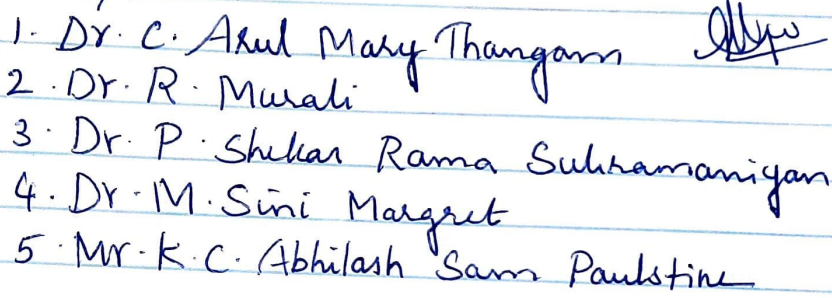 1. Dr. C. Arul Mary Thangam
2. Dr. R. Murali
3. Dr. P. Shekar Rama Subramaniyan
4. Dr. M. Sini Margret
5. Mr. K. C. Abhilash Sam Paulstine